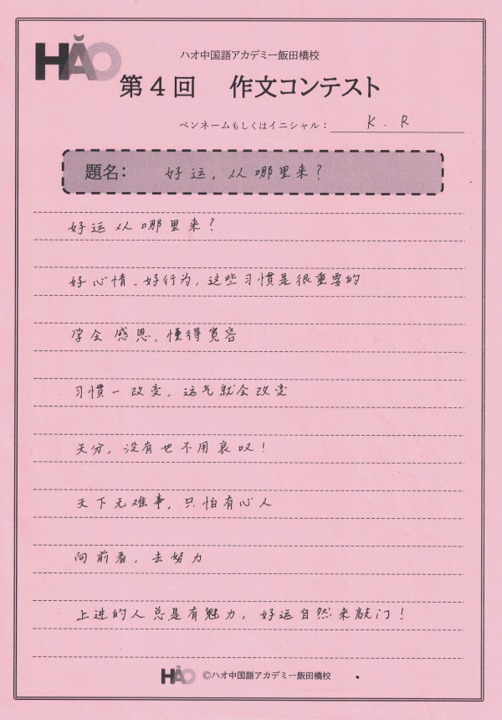 HǍO
ハオ中国語アカデミー飯田橋校
第4回 作文コンテスト
ペンネームもしくはイニシャル: K.R
題名: 好运,从哪里来?
好运从哪里来?
好心情、好行为,这些习惯是很重要的
学会感恩,懂得宽容
习惯一改变,运气就会改变
天分,没有也不用哀叹!
天下无难事,只怕有心人
向前看,去努力
上进的人总是有魅力,好运自然来敲门!
HǍO ©ハオ中国語アカデミー飯田橋校